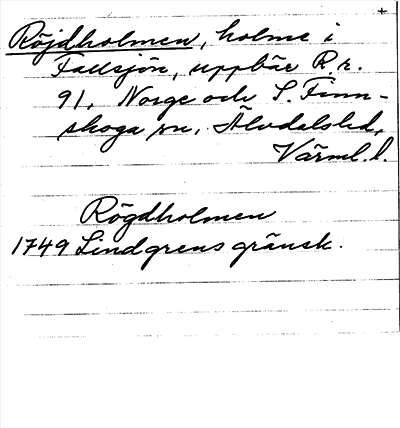 +
Röjdholmen, holme i
Fallsjön, uppbär R.r.
91, Norge och S. Finn-
skoga sn, Älvdals hd,
Värml. l.
Rögdholmen
1749 Lindgrens gränsk.